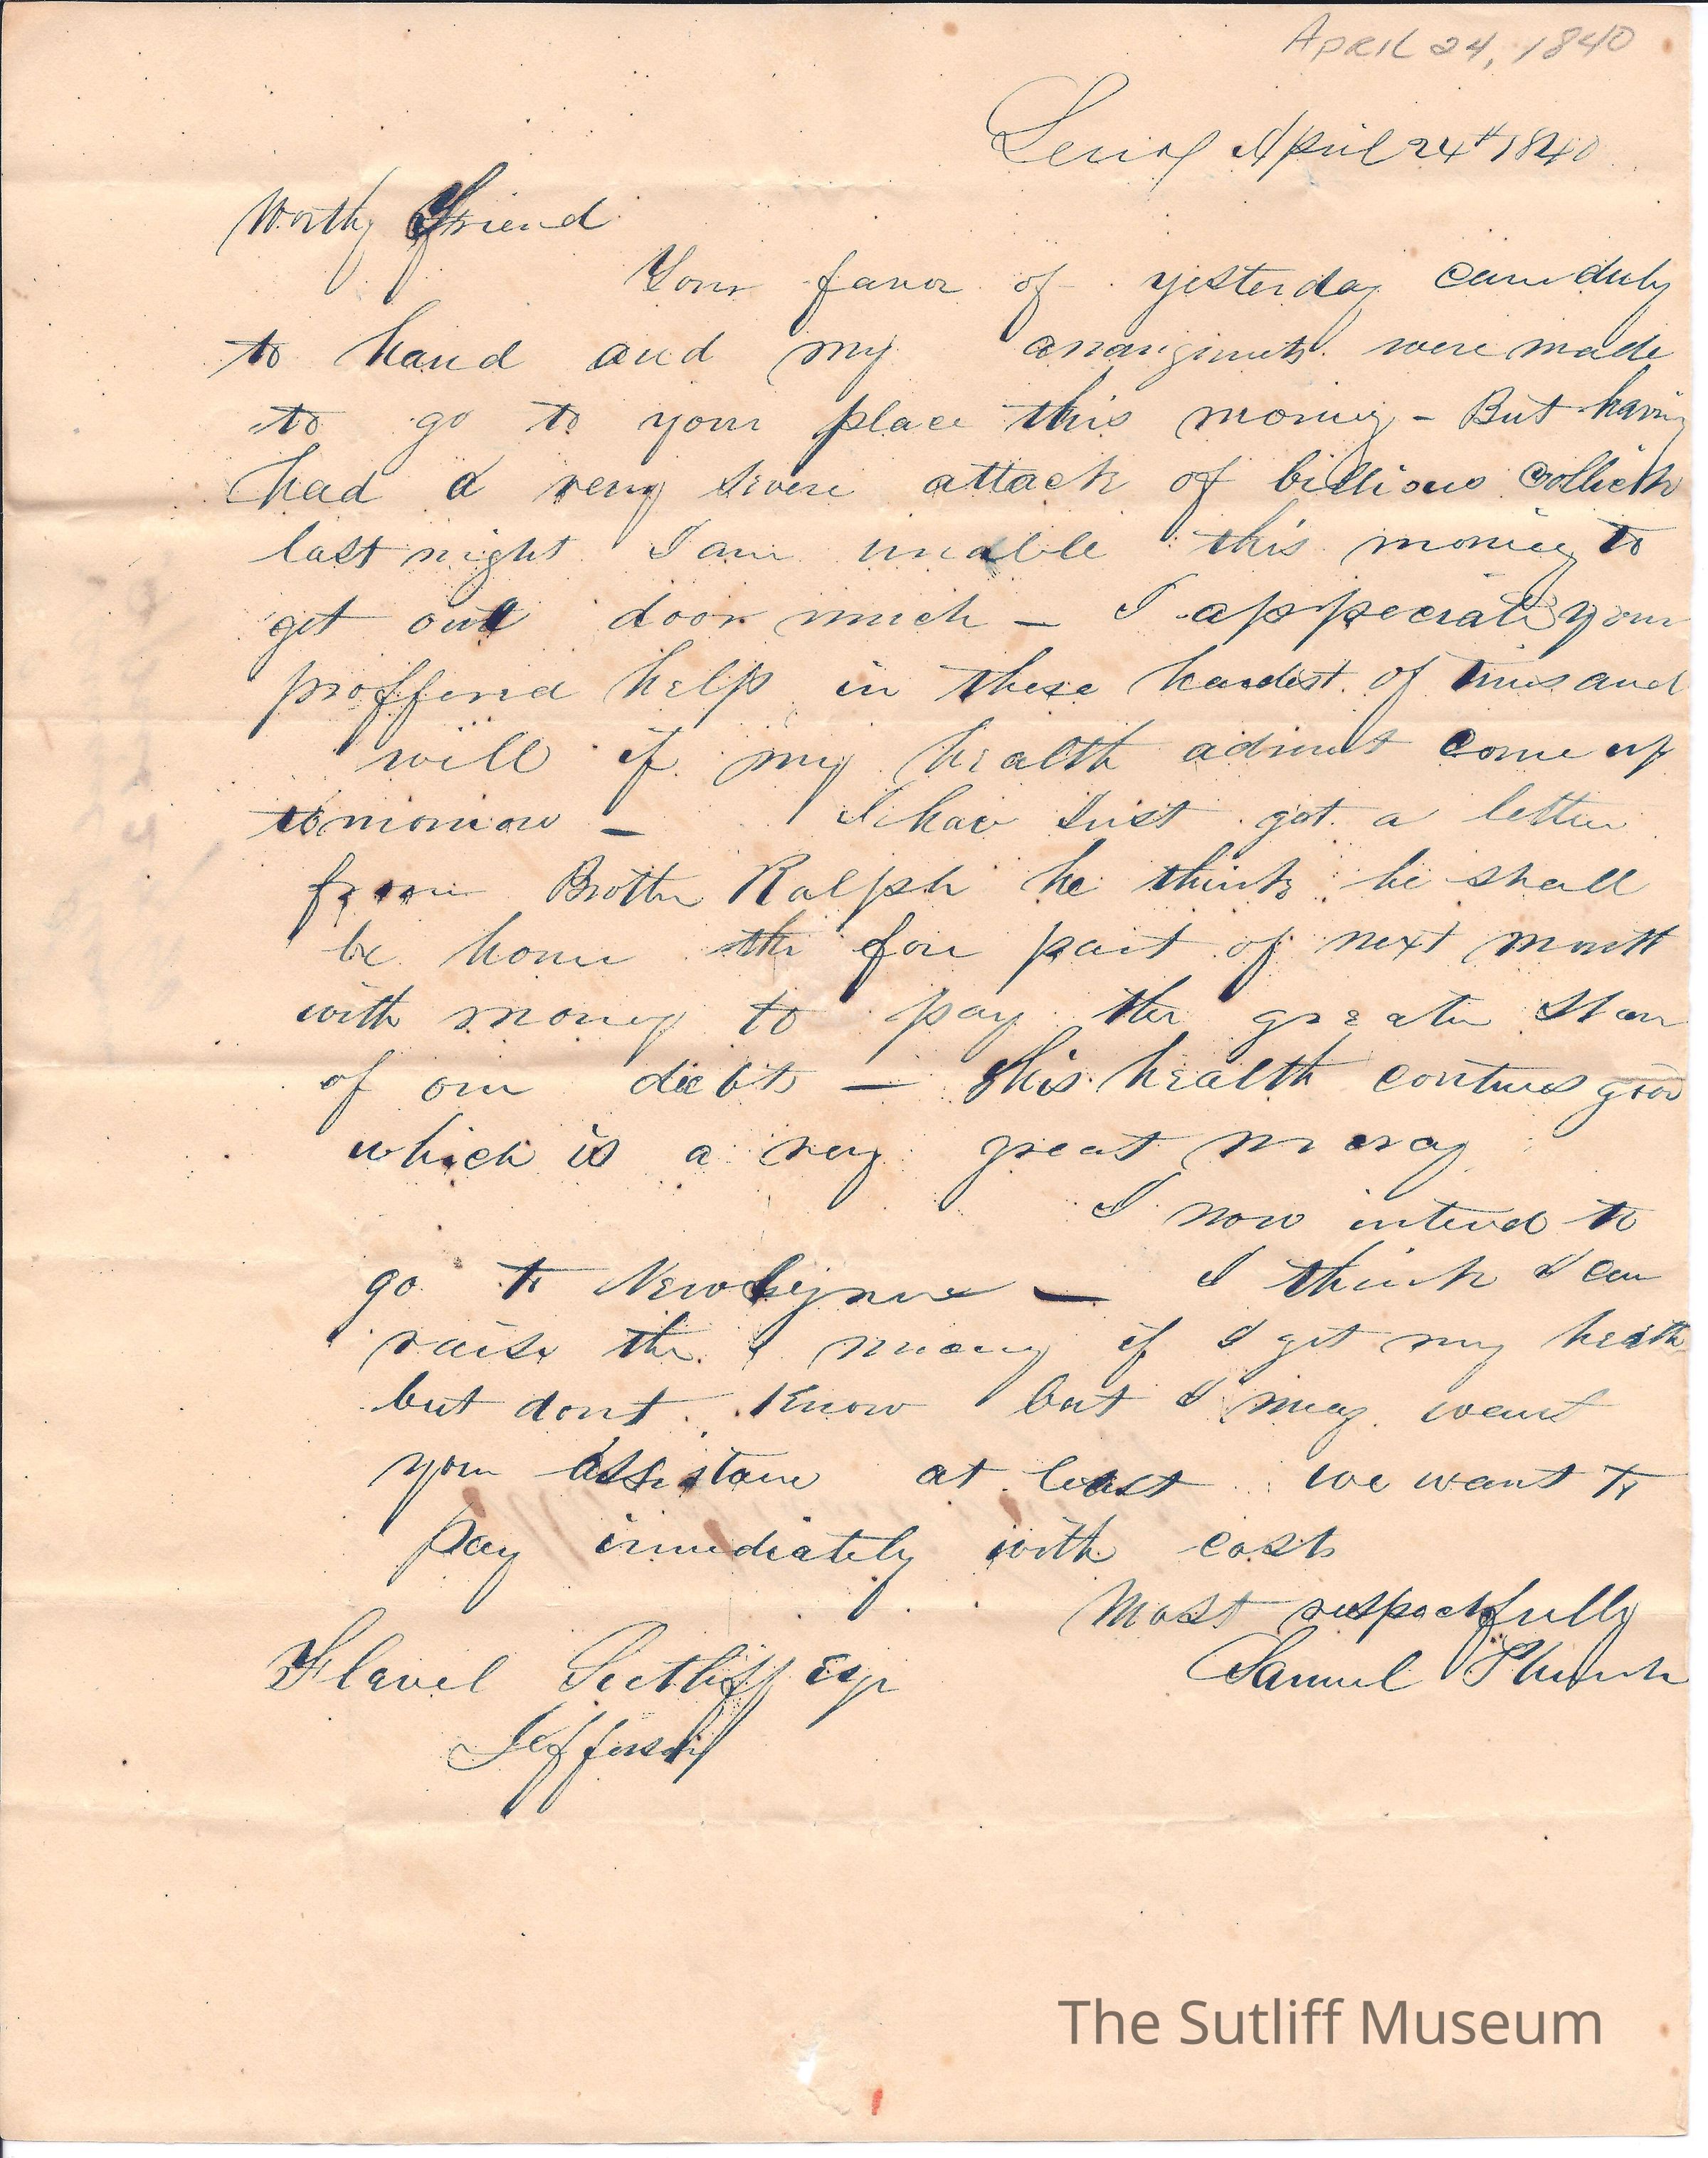 April 24, 1840
Lenox April 24th 1840
Worthy Friend
Your favor of yesterday came duly
to hand and my arangments were made
to go to your place this morning - But having
had a very severe attack of billious collick
last night I am unable this morning to
get out door much - I appreciate your
proffered help in these hardest of times and
will if my health admit come up
tomorrow - I have Just got a letter
from Brother Ralph he thinks he shall
be home the fore part of next month
with money to pay the greater Shar
of our debts - His health continues good
which is a very great mercy
I now intend to
go to New - I think I can
raise the money if I get my health
but dont know but I may want
your assistance at least we want to
pay immediately with costs
Most respectfully
Flavel Sutliff Esqr Samuel Plumb
Jefferson
The Sutliff Museum